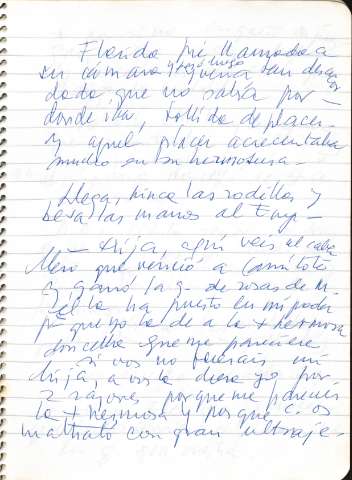 Florida fué llamada a
su cámara y rezó luego venía tan descui
dada que no sabía por-
donde iba, tollida de placer
y aquel placer acrecentaba
mucho en su hermosura.-
Llega, hinca las rodillas y
besa las manos al Emp-
- Hija, aquí veis el caba
llero que venció a
y ganó la g. de rosas de M.
él la ha puesto en mi poder
pª que yo la dé a la + hermosa
doncella que me pareciere
si vos no fuerais mi
hija, a vos la diera yo por
2 razones porque me pareceis
la + hermosa y porque C. os
maltrató con gran ultraje-